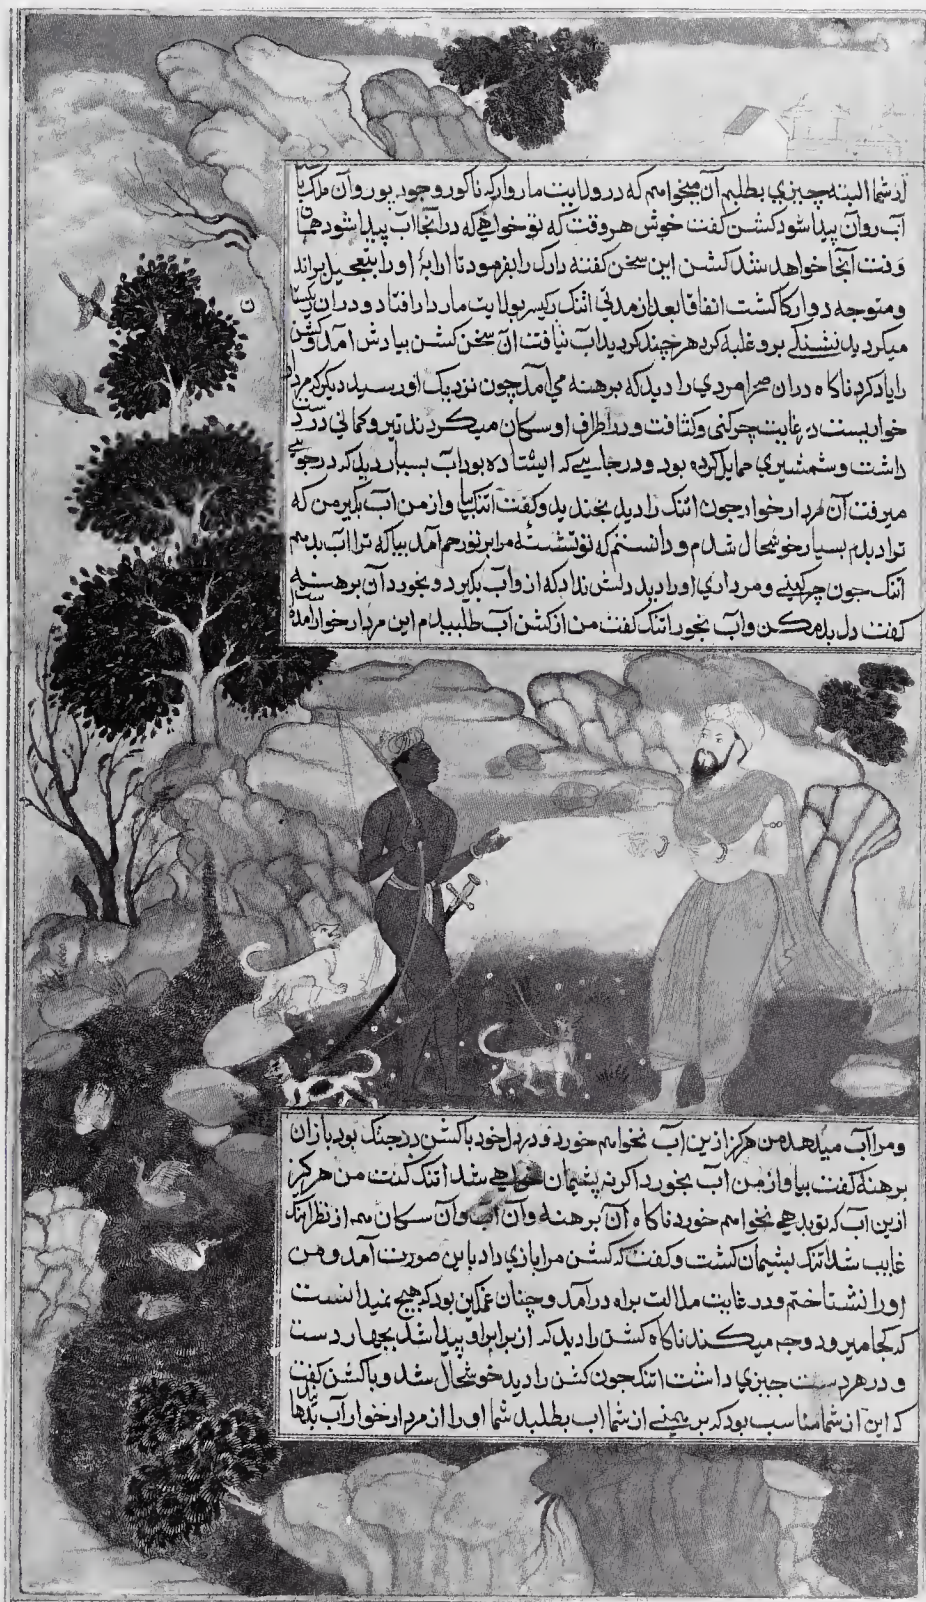 از شما البته چیزی بطلبم آن میخواهم که در ولایت ماروار که ناکور وجود پور و آن ملک
آب روان پیدا شود کشن گفت خوش هر وقت که تو خواهی که در آنجا آب پیدا شود همان
وقت آنجا خواهد شد کشن این سخن گفته دارک را بفرمود تا ارابهٔ او را بتعجیل براند
و متوجه دوارکا گشت اتفاقا بعد از مدتی اتنک را کیسر بولایت ماردار افتاد و در ان
میگردید تشنگی برو غلبه کرد هر چند گردید آب نیافت آن سخن کشن بیادش آمد و کشن
را یاد کرد ناگاه دران صحرا مردی را دید که برهنه می آمد چون نزدیک او رسید دید که
خواریست در غایت چرکنی و کثافت و در اطراف او سکان میگردند تیر و کمانی در
داشت و شمشیری حمایل کرده بود و در جائی که ایستاده بود آب بسیار دید که در جوئی
میرفت آن مردار خوار چون اتنک را دید بخندید و گفت اتنک بیا و از من آب بگیر من که
ترا دیدم بسیار خوشحال شدم و دانستم که تو تشنهٔ مرا بر تو رحم آمد بیا که ترا آب بدهم
اتنک چون چرکینی و مرداری او را دید دلش نداد که از و آب بگیرد و بخورد آن برهنه
گفت دل بد مکن و آب بخور اتنک گفت من از کشن آب طلبیدم این مردار خوار آمده
ن
و مرا آب میدهد من هرگز ازین آب نخواهم خورد و در دل خود با کشن در جنگ بود باز ان
برهنه گفت بیا و از من آب بخور و اگر نه پشیمان خواهی شد اتنک گفت من هرگز
ازین آب که تو بدهی نخواهم خورد ناگاه آن برهنه و آن آب و آن سکان همه از نظر اتنک
غایب شد اتنک پشیمان گشت و گفت که کشن مرا بازی داد باین صورت آمد و من
او را نشناختم و در غایت ملالت براه در آمد و چنان غمگین بود که هیچ نمیدانست
که کجا میرود و چه میکند ناگاه کشن را دید که از برابر او پیدا شد بچهار دست
و در هر دست چیزی داشت اتنک چون کشن را دید خوشحال شد و با کشن گفت
که این از شما مناسب بود که برهمنی از شما آب بطلبد شما او را از مردار خوار آب بدهانید